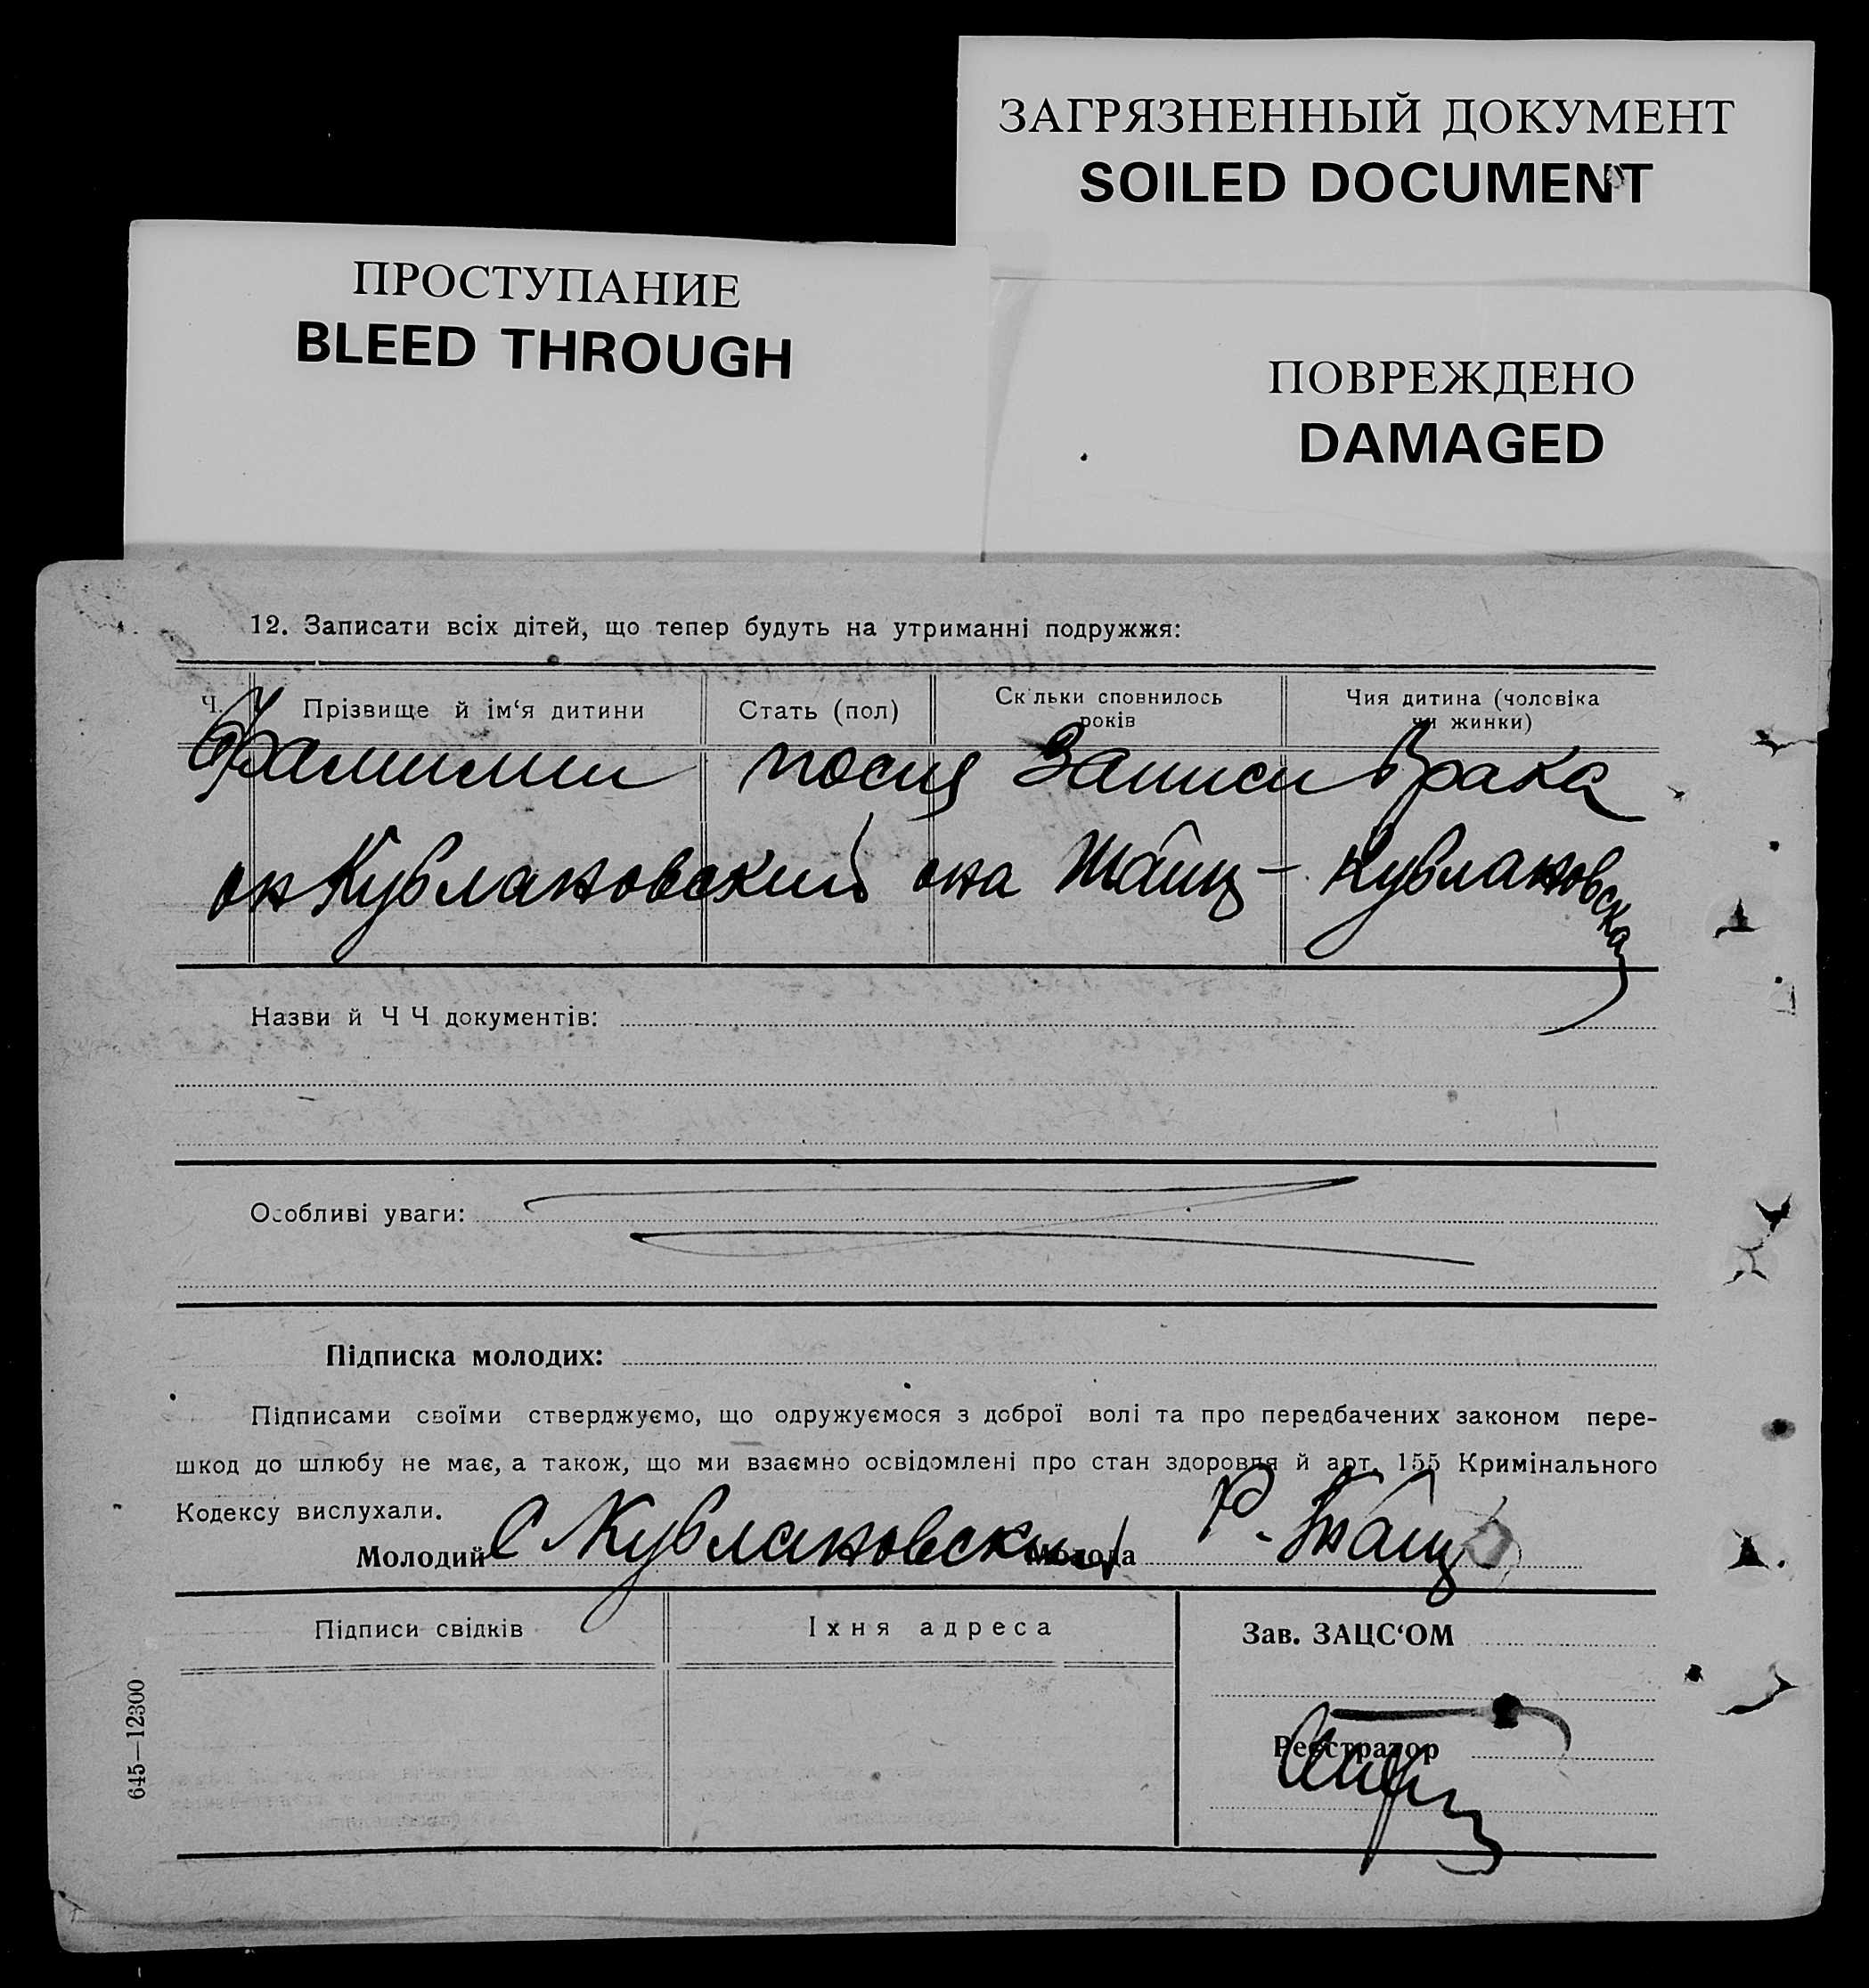 ЗАГРЯЗНЕННЫЙ ДОКУМЕНТ
SOILED DOCUMENT
ПРОСТУПАНИЕ
BLEED THROUGH
ПОВРЕЖДЕНО
DAMAGED
12. Записати всіх дітей, що тепер будуть на утриманні подружжя:
Ч.
Прізвище й ім‘я дитини
Стать (пол)
Скільки сповнилось
років
Чия дитина (чоловіка
чи жинки)
Фамилии после записи брака
он Кублановский она – Кублановская
Назви й Ч Ч документів:
Особливі уваги:
Підписка молодих:
Підписами своїми стверджуємо, що одружуємося з доброї волі та про передбачених законом пере-
шкод до шлюбу не має, а також, що ми взаємно освідомлені про стан здоровля й арт. 155 Кримінального
Кодексу вислухали.
Молодий С Кублановский Молода Р.
Підписи свідків
Іхня адреса
Зав. ЗАЦС‘ОМ
Реєстратор
645—12300